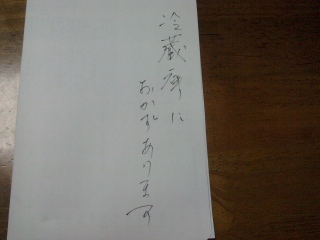 冷蔵庫に
おかずあります